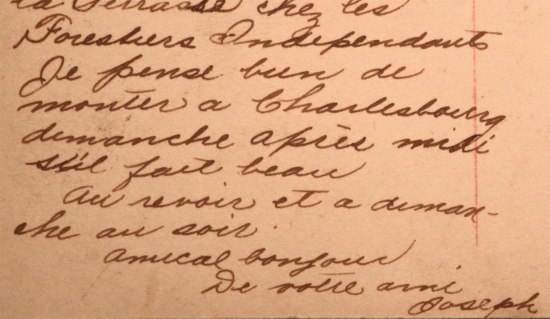 la Terrasse chez les
Forestiers Independants
Je pense bien de
monter a Charlesbourg
dimanche après midi
s'il fait beau
Au revoir et a diman-
che au soir.
amical bonjour
De votre ami
Joseph